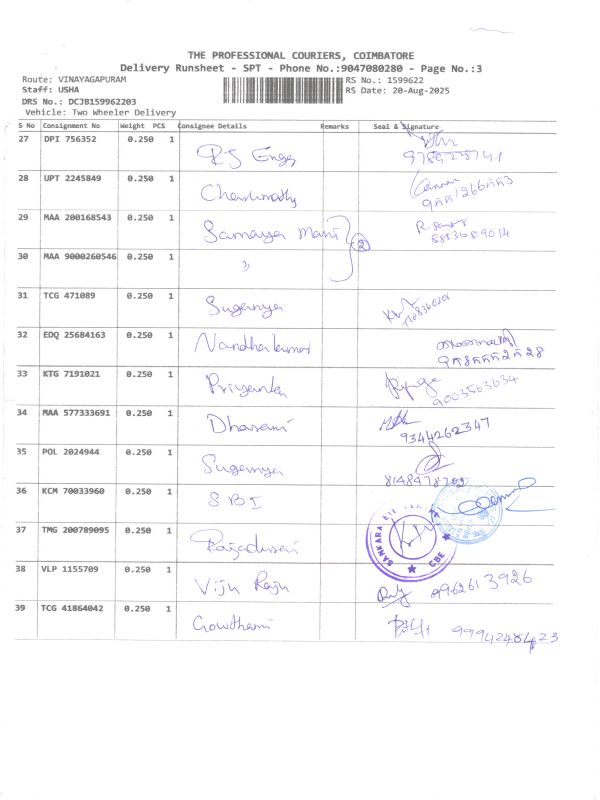 THE PROFESSIONAL COURIERS, COIMBATORE
Delivery Runsheet - SPT - Phone No.:9047080280 - Page No.:3
Route: VINAYAGAPURAM
RS No.: 1599622
Staff: USHA
RS Date: 20-Aug-2025
DRS No.: DCJB159962203
Vehicle: Two Wheeler Delivery
S No Consignment No Weight PCS Consignee Details Remarks Seal & Signature
27 DPI 756352 0.250 1 RJ Engg
28 UPT 2245849 0.250 1
29 MAA 200168543 0.250 1 Samaya Mani 2 8883689014
30 MAA 9000260546 0.250 1 "
31 TCG 471089 0.250 1 Suganya
32 EDQ 25684163 0.250 1 Nandhakumar
33 KTG 7191021 0.250 1 Priyanka 9003563634
34 MAA 577333691 0.250 1 Dharani 9344262347
35 POL 2024944 0.250 1 Suganya
36 KCM 70033960 0.250 1 SBI
37 TMG 200789095 0.250 1 Rajadurai SANKARA CBE
38 VLP 1155709 0.250 1 Viju Raju 9962613926
39 TCG 41864042 0.250 1 Gowthami